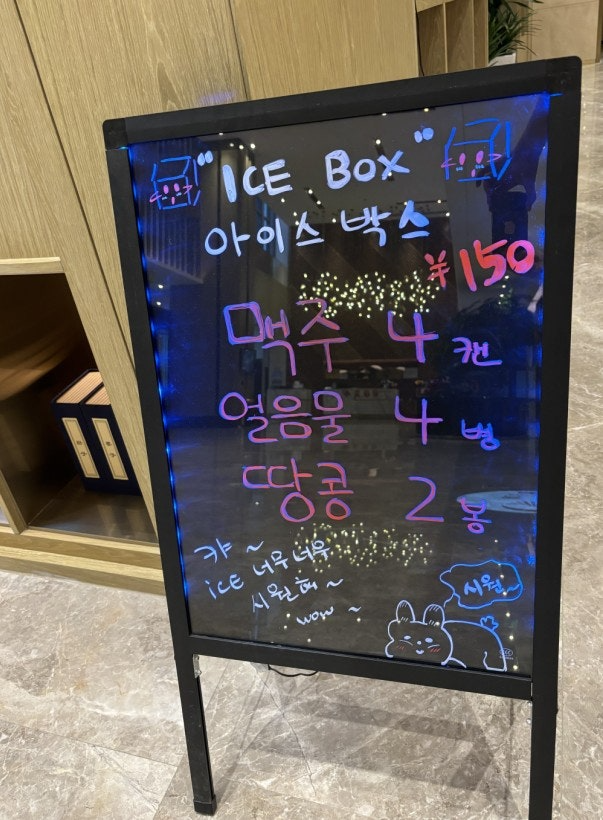 "ICE BOX"
아이스박스
¥150
맥주 4 캔
얼음물 4 병
땅콩 2 봉
캬~
ICE 너무너무
시원해~
wow~
시원~